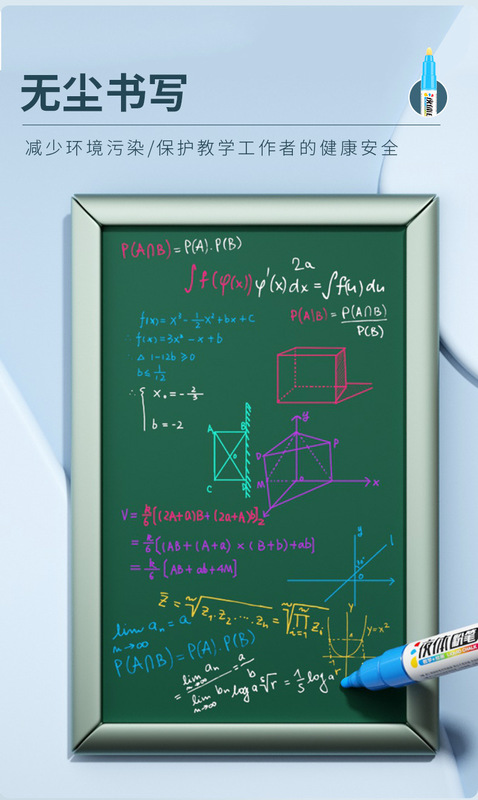 无尘书写
减少环境污染/保护教学工作者的健康安全
P(A∩B)=P(A).P(B)
2a
∫f(φ(x))φ'(x)dx=∫f(u)du
P(A|B)=P(A∩B)/P(B)
f(x)=x³-1/2x²+bx+c
∴f(x)=3x²-x+b
∴△1-12b≥0
b≤1/12
∴{x₀=-2/3
b=-2
A B
C D
y
D P
M x
V=h/6[(2A+a)B+(2a+A)b]
=h/6[(AB+(A+a)×(B+b)+ab]
=h/6[AB+ab+4M]
y
l
O
Z̄=ⁿ√Z₁.Z₂.….Zₙ=ⁿ√∏ᵢ₌₁ⁿZᵢ
Y
y=x²
-1
lim n→∞ aₙ=a
P(A∩B)=P(A).P(B)
=lim n→∞ aₙ/lim n→∞ bₙ=a/b
log a ⁵√r=1/5 log a r
液体粉笔